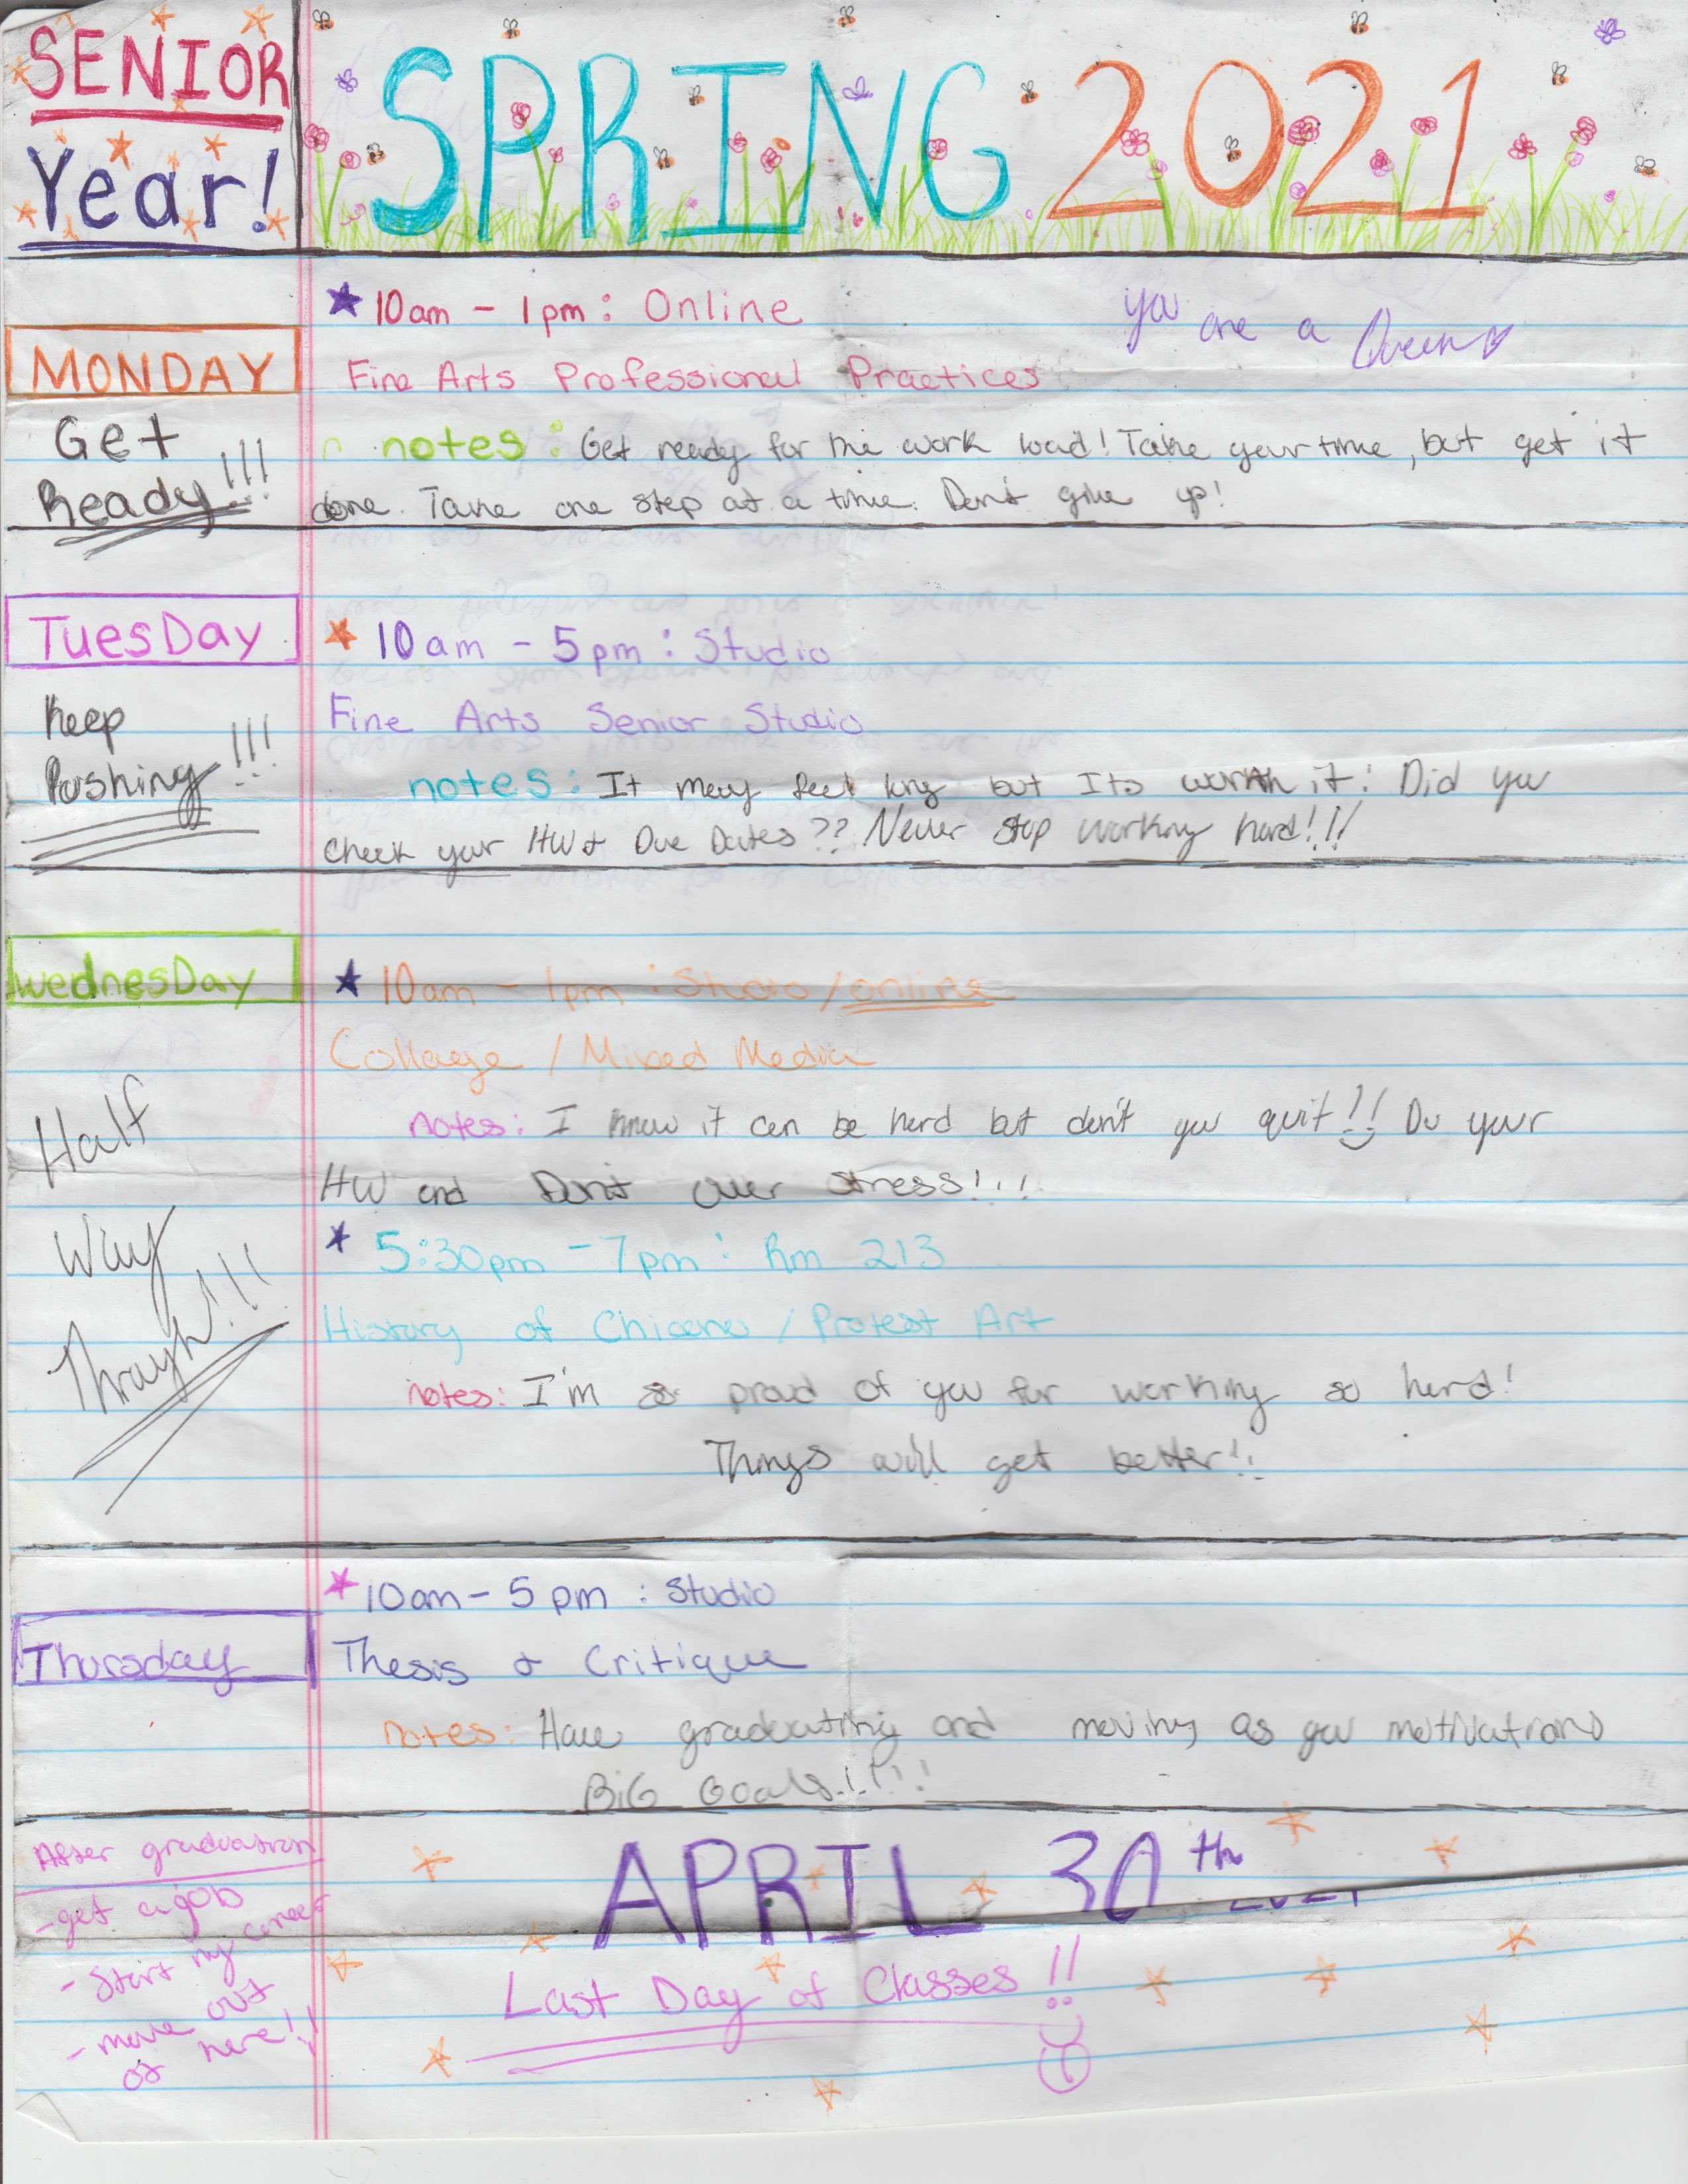 SENIOR
Year!
SPRING 2021
★ 10am - 1pm: Online
you are a Queen
MONDAY
Fine Arts Professional Practices
Get
Ready!!!
notes: Get ready for the work load! Take your time, but get it
done. Take one step at a time. Don't give up!
TuesDay
★ 10am - 5pm: Studio
Keep
Pushing!!!
Fine Arts Senior Studio
notes: It may feel long but Its worth it! Did you
check your HW & Due Dates?? Never stop working hard!!!
wednesDay
★ 10am - 1pm: Studio/online
Collage / Mixed Media
Half
Way
Through!!!
notes: I know it can be hard but don't you quit!! Do your
HW and Don't over stress!!!
★ 5:30pm - 7pm: Rm 213
History of Chicano / Protest Art
notes: I'm so proud of you for working so hard!
Things will get better!!
★ 10am - 5pm: Studio
Thursday
Thesis & Critique
notes: Have graduating and moving as you motivations
BIG Goals!!!!!
After graduation
- get a job
- Start my career
- move out
of here!!
APRIL 30th
2021
Last Day of Classes!!